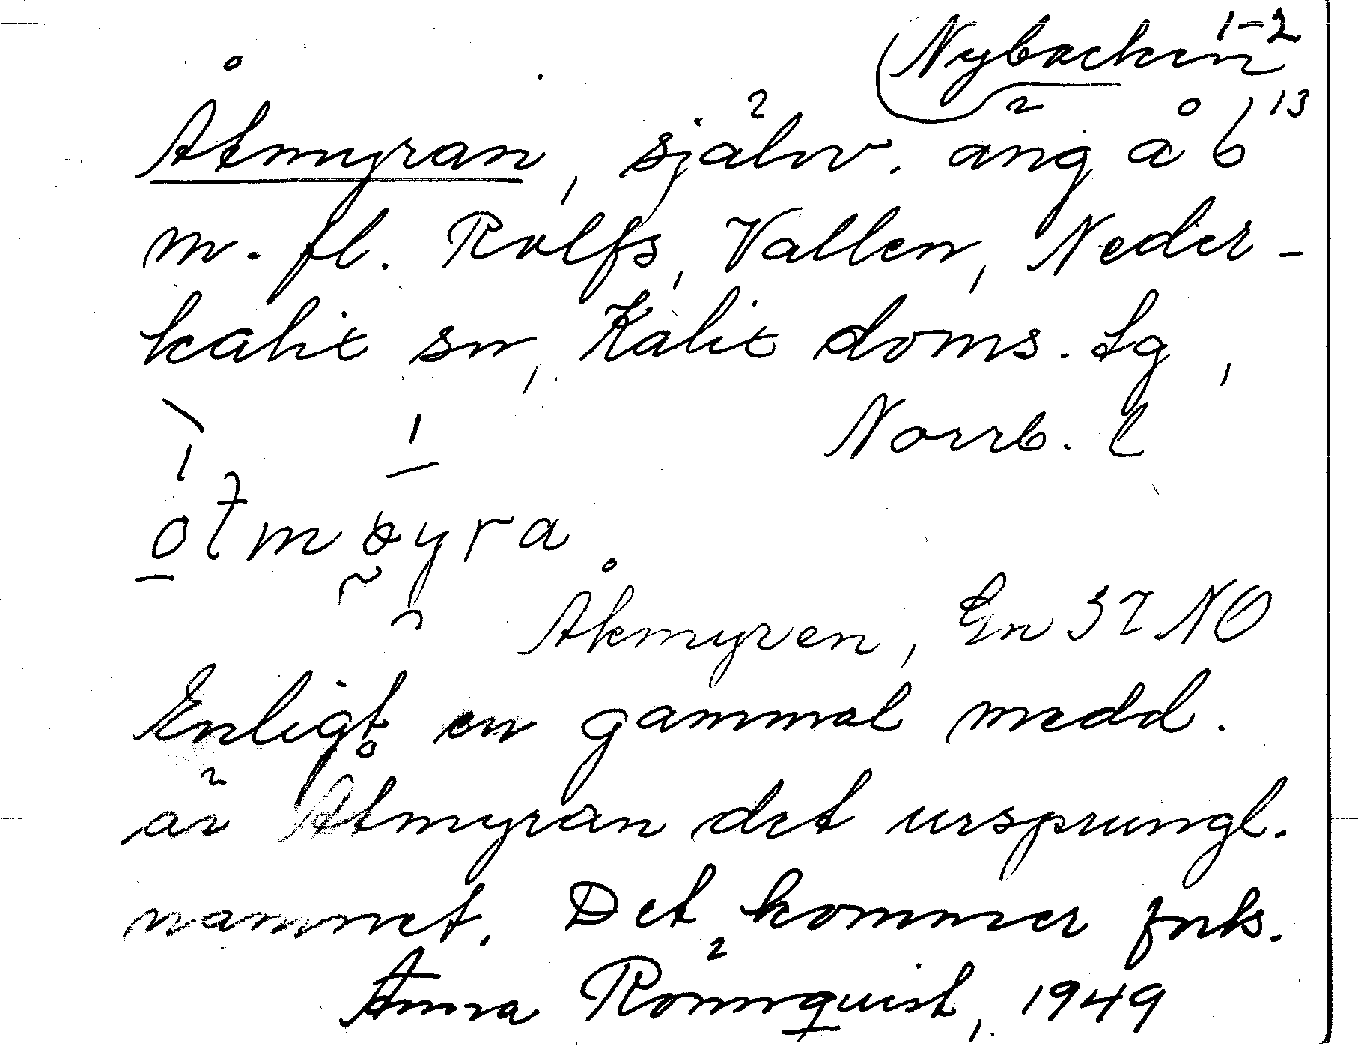 Nybacken 1-2
Åtmyran, självv. äng å 6 13
m. fl. Rolfs, Vallen, Neder-
kalix sn, Kalix doms. Lg,
Norrb. l
otmøyra.
Åkmyren, En 32 NO
Enligt en gammal medd.
är Åtmyran det ursprungl.
namnet. Det kommer fnk.
Anna Rönnquist, 1949